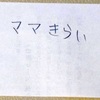 ママきらい